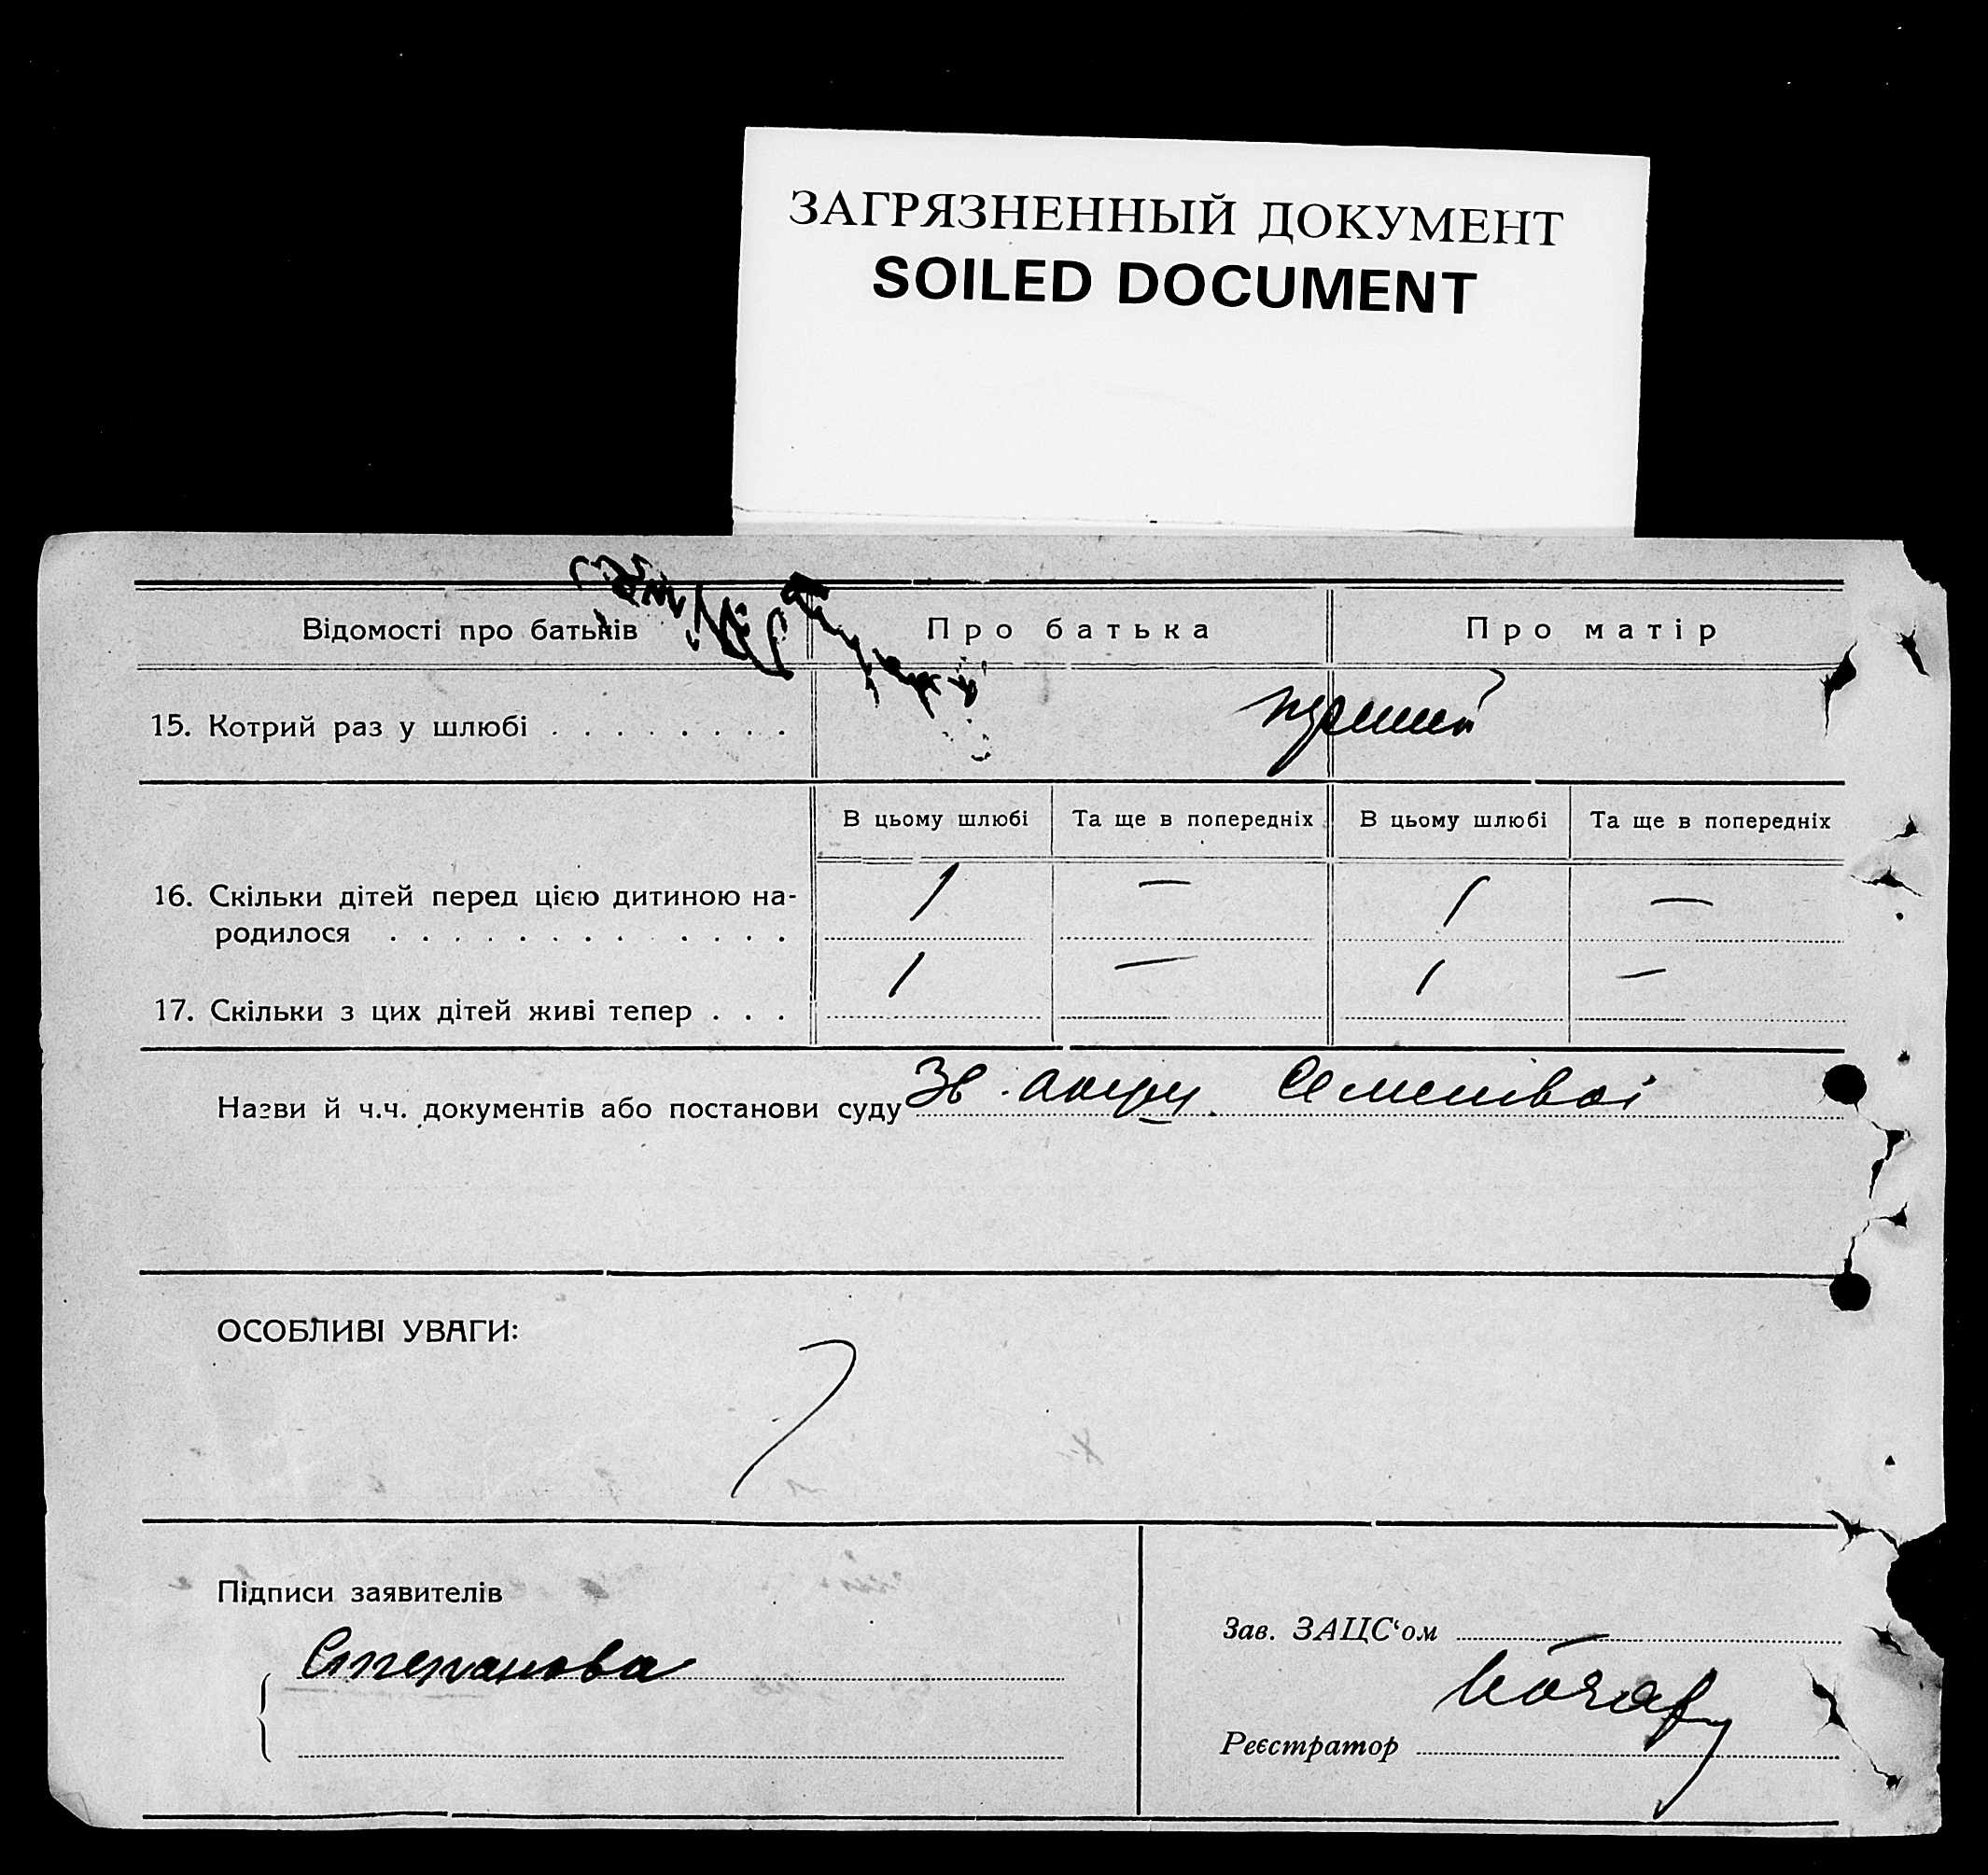 ЗАГРЯЗНЕННЫЙ ДОКУМЕНТ
SOILED DOCUMENT
Відомості про батьків
Про батька
Про матір
15. Котрий раз у шлюбі . . . . . . . .
В цьому шлюбі
Та ще в попередніх
В цьому шлюбі
Та ще в попередніх
16. Скільки дітей перед цією дитиною на-
родилося . . . . . . . . . . . .
1 — 1 —
17. Скільки з цих дітей живі тепер . . .
1 — 1 —
Назви й ч.ч. документів або постанови суду Зв.
ОСОБЛИВІ УВАГИ:
Підписи заявителів
Степанова
Зав. ЗАЦС‘ом
Реєстратор